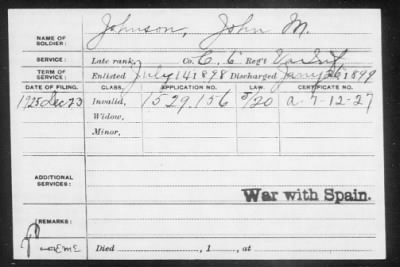 NAME OF SOLDIER: Johnson, John M.
SERVICE: Late rank, Co. C, 6 Reg't Va Inf
TERM OF SERVICE: Enlisted July 14 1898 Discharged Jany 26 1899
DATE OF FILING. CLASS. APPLICATION NO. LAW. CERTIFICATE NO.
1925 Dec 23 Invalid, 1529.156 5/20 a-7-12-27
Widow,
Minor,
ADDITIONAL SERVICES:
War with Spain.
REMARKS:
Died , 1 , at